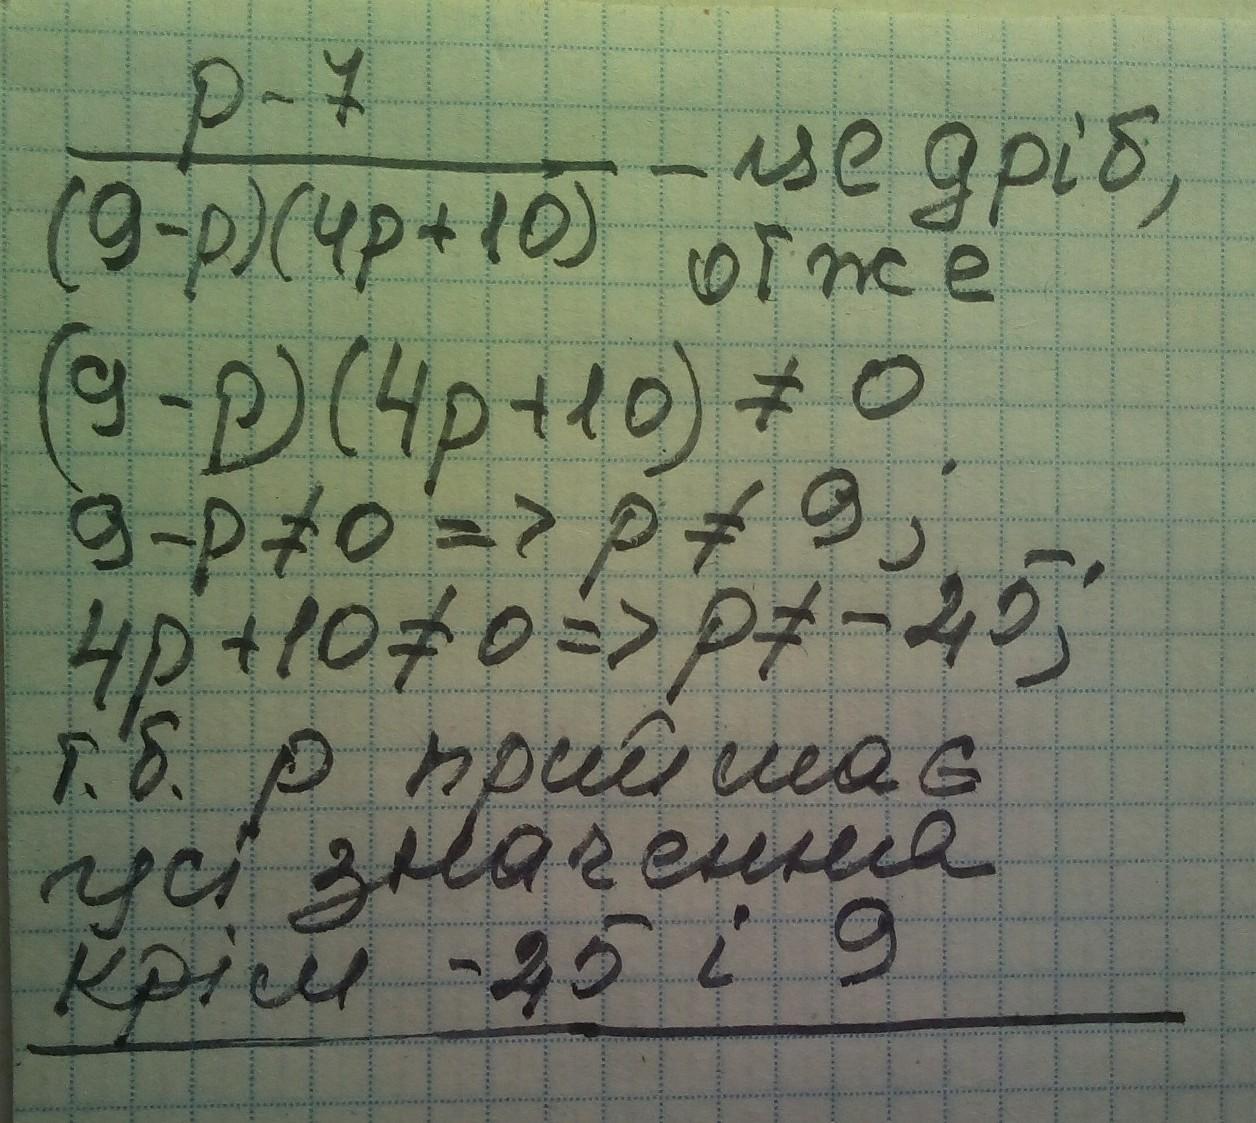 p - 7
(9-p)(4p+10) - це дріб,
отже
(9-p)(4p+10) ≠ 0
9-p≠0 => p ≠ 9;
4p+10≠0 => p≠ -25;
т.б. p приймає
усі значення
крім -25 і 9